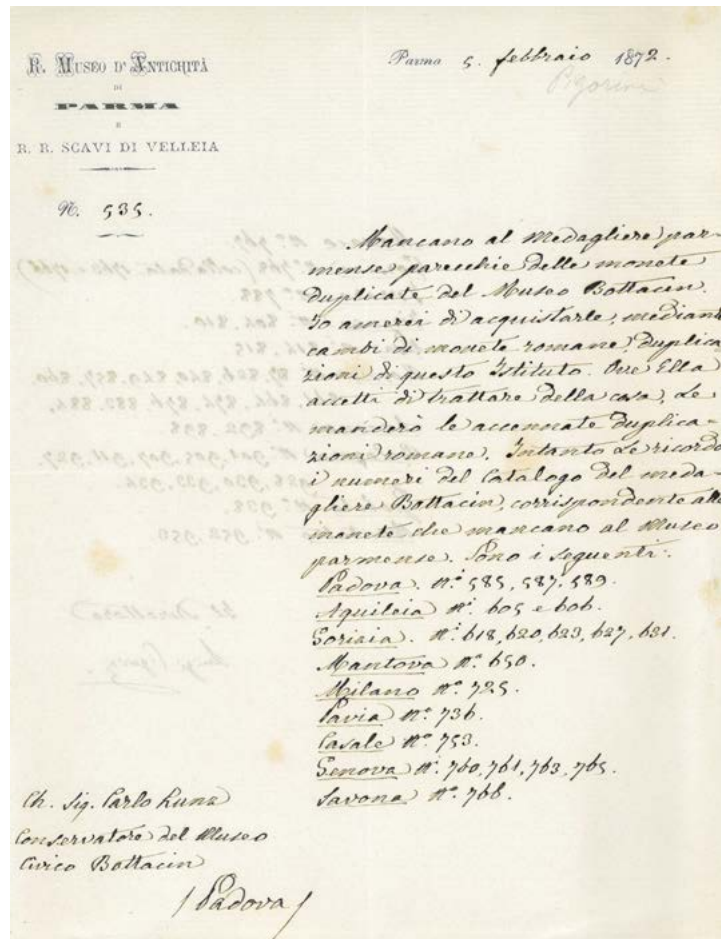 R. MUSEO D'ANTICHITÀ
DI
PARMA
E
R. R. SCAVI DI VELLEIA
N. 535.
Parma 5. febbraio 1872.
Pigorini
Mancano al Medagliere par-
mense parecchie delle monete
duplicate del Museo Bottacin.
Io amerei di acquistarle, mediante
cambi di monete romane, duplica
zioni di questo Istituto. Ove Ella
accetti di trattare della cosa, Le
manderò le accennate duplica-
zioni romane. Intanto Le ricordo
i numeri del Catalogo del meda-
gliere Bottacin, corrispondente alle
monete che mancano al Museo
parmense. Sono i seguenti:
Padova. n.i 585, 587, 589.
Aquileia n.i 605 e 606.
Gorizia. n.i 618, 620, 623, 627, 631.
Mantova n.o 650.
Milano n.o 725.
Pavia n.o 736.
Casale n.o 753.
Genova n.i 760, 761, 763, 765.
Savona n.o 766.
Ch. Sig. Carlo Kunz
Conservatore del Museo
Civico Bottacin
/ Padova /